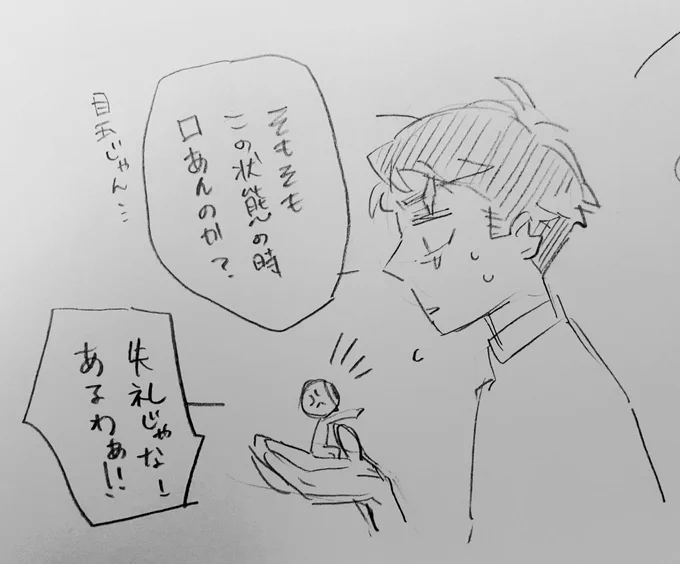 そもそも
この状態の時
口あんのか?
目玉じゃん…
失礼じゃな!
あるわぁ!!